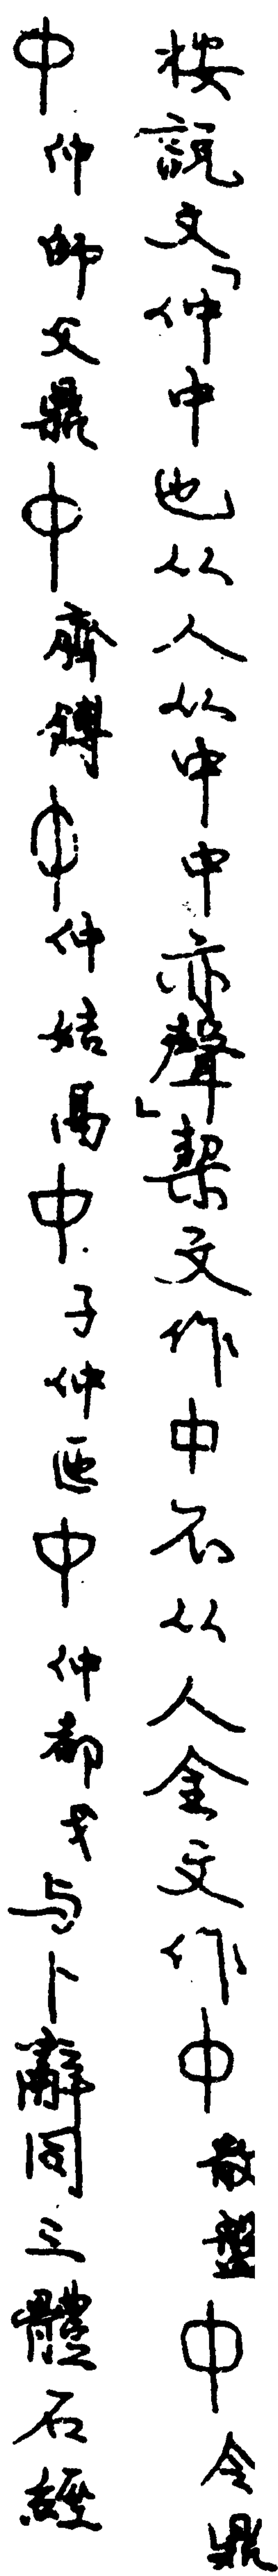 按説文「仲中也从人从中中亦聲」栔文作中不从人金文作中散盤中令鼎
中仲師父鼎中齊鎛中仲姞鬲中子仲匜中仲都戈与卜辭同三體石經